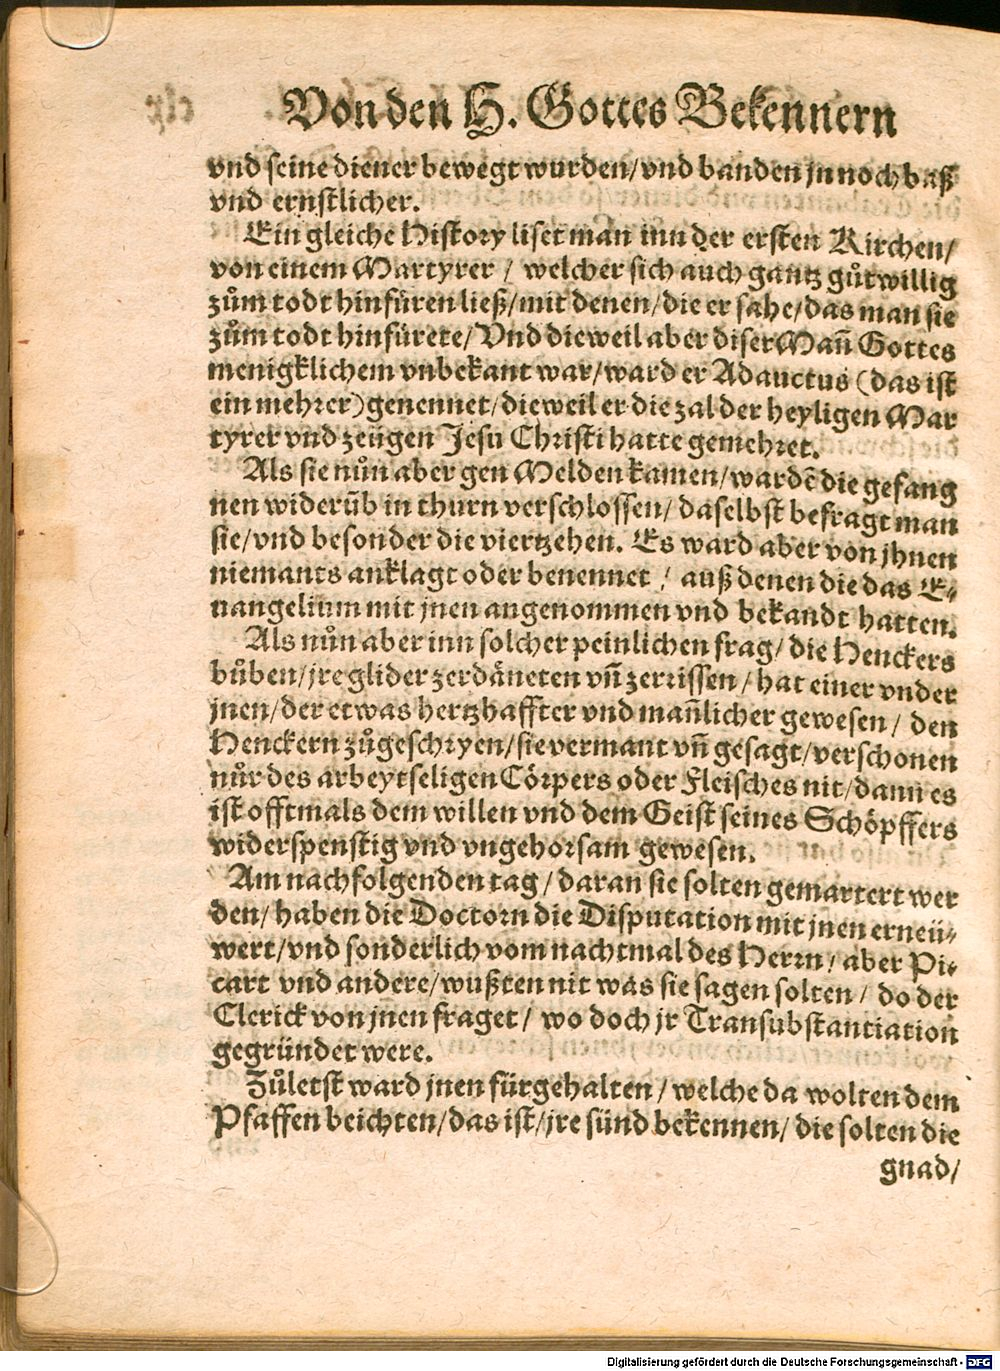 Von den H. Gottes Bekennern
vnd seine diener bewegt wurden/vnd banden jn noch baß
vnd ernstlicher.
Ein gleiche History liset man inn der ersten Kirchen/
von einem Martyrer / welcher sich auch gantz gůtwillig
zům todt hinfüren ließ/mit denen/die er sahe/das man sie
zům todt hinfürete/Vnd dieweil aber diser Mañ Gottes
menigklichem vnbekant war/ward er Adauctus (das ist
ein mehrer)genennet/dieweil er die zal der heyligen Mar
tyrer vnd zeügen Jesu Christi hatte gemehret.
Als sie nůn aber gen Melden kamen/wardẽ die gefang
nen widerũb in thurn verschlossen/ daselbst befragt man
sie/vnd besonder die viertzehen. Es ward aber von jhnen
niemants anklagt oder benennet / auß denen die das E⸗
uangelium mit jnen angenommen vnd bekandt hatten.
Als nůn aber inn solcher peinlichen frag/ die Henckers
bůben/jre glider zerdäneten vñ zerrissen / hat einer vnder
jnen/der etwas hertzhaffter vnd mañlicher gewesen / den
Henckern zůgeschryen/sie vermant vñ gesagt/verschonen
nůr des arbeytseligen Cörpers oder Fleisches nit/dann es
ist offtmals dem willen vnd dem Geist seines Schöpffers
widerspenstig vnd vngehorsam gewesen.
Am nachfolgenden tag / daran sie solten gemartert wer
den/ haben die Doctorn die Disputation mit jnen erneü⸗
wert/vnd sonderlich vom nachtmal des Herrn/ aber Pi⸗
cart vnd andere/wußten nit was sie sagen solten / do der
Clerick von jnen fraget / wo doch jr Transubstantiation
gegründet were.
Zůletst ward jnen fürgehalten / welche da wolten dem
Pfaffen beichten/das ist/jre sünd bekennen/ die solten die
gnad/
Digitalisierung gefördert durch die Deutsche Forschungsgemeinschaft - DFG